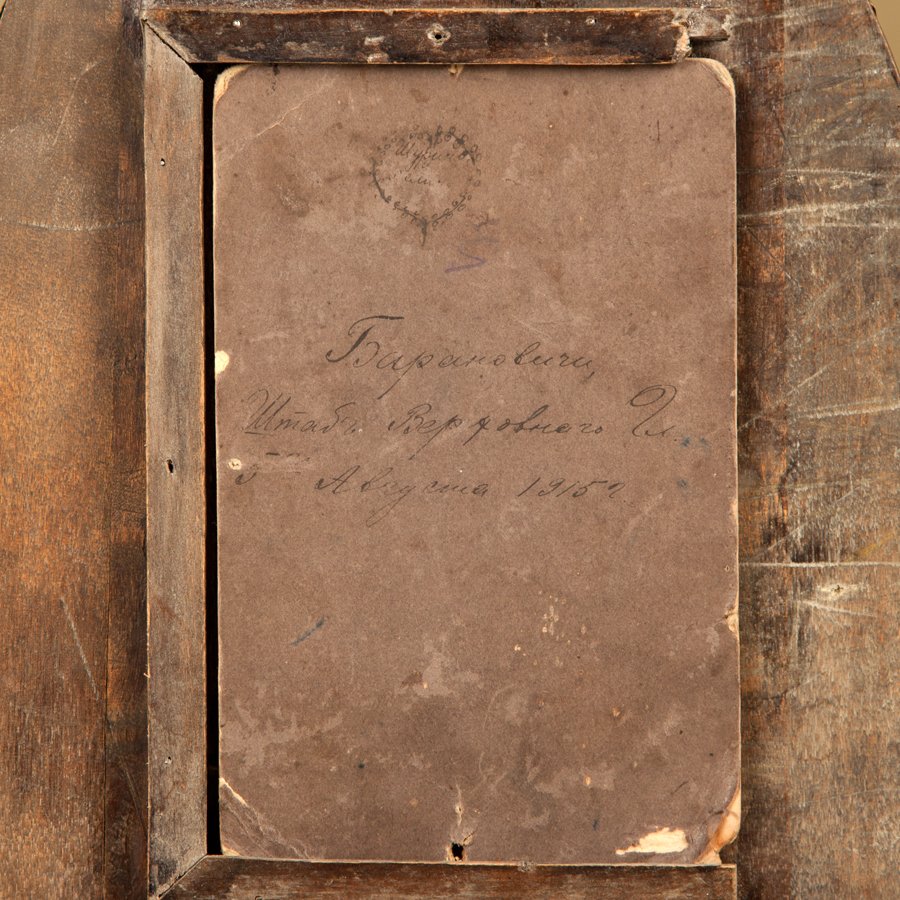 Барановичи,
Штабъ Верховнаго Гл.
5 Августа 1915 г